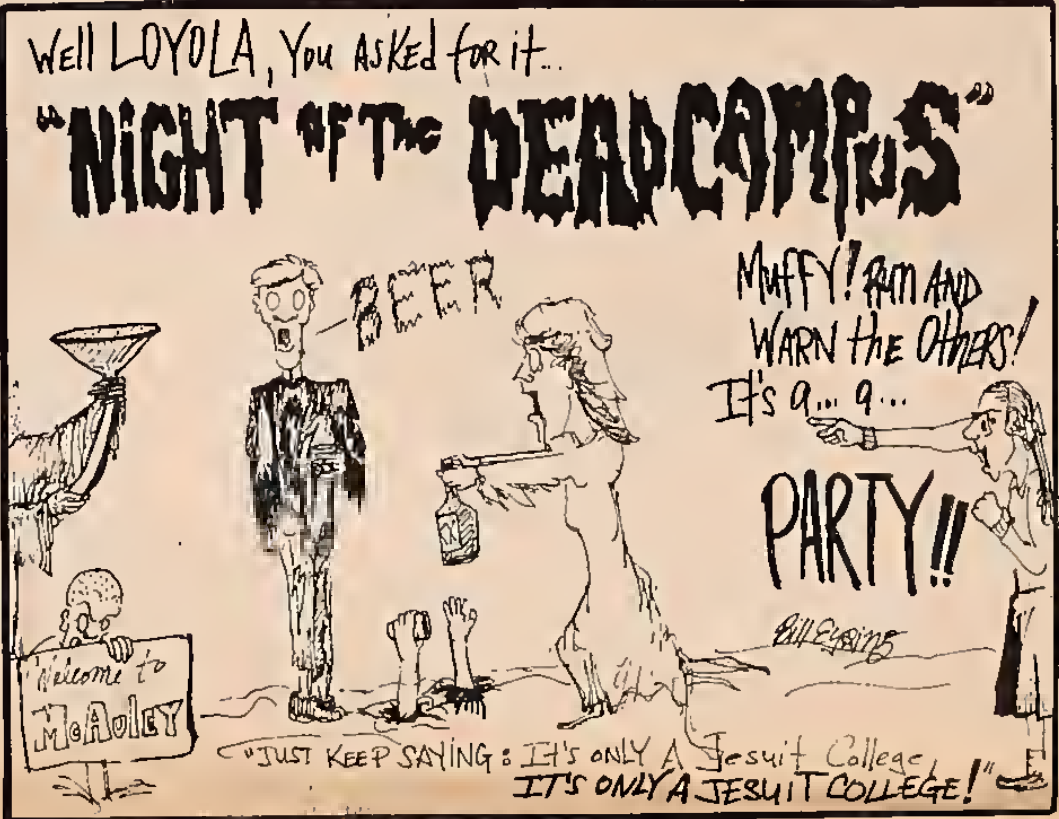 Well LOYOLA, You ASKEd for it...
"NiGHT OF THE DEADCAMPuS"
BEER
MuffY! RUN AND
WARN the OtHERS!
It's a... a...
PARTY!!
Welcome to
McAuley
"JUST KEEP SAYING: It's ONLY A Jesuit College,
IT'S ONLY A JESUIT COLLEGE!"